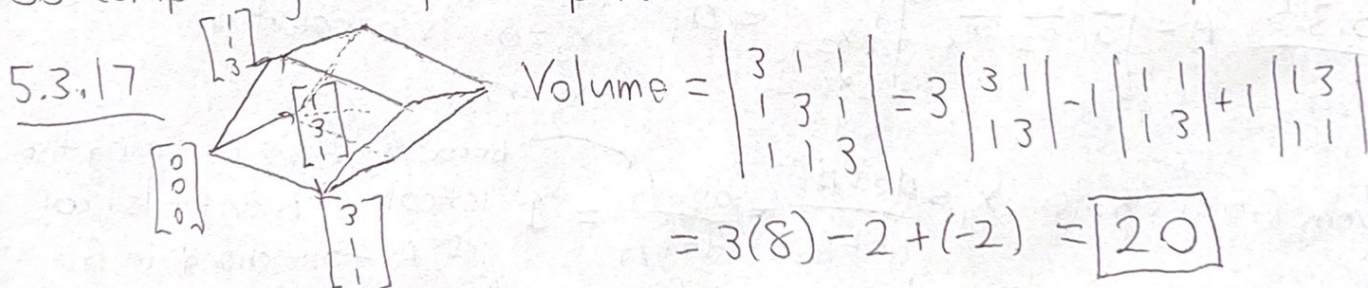 5.3.17
[1 1 3]
[1 3 1]
[0 0 0]
[3 1 1]
Volume = |3 1 1; 1 3 1; 1 1 3| = 3|3 1; 1 3| - 1|1 1; 1 3| + 1|1 3; 1 1|
= 3(8) - 2 + (-2) = 20